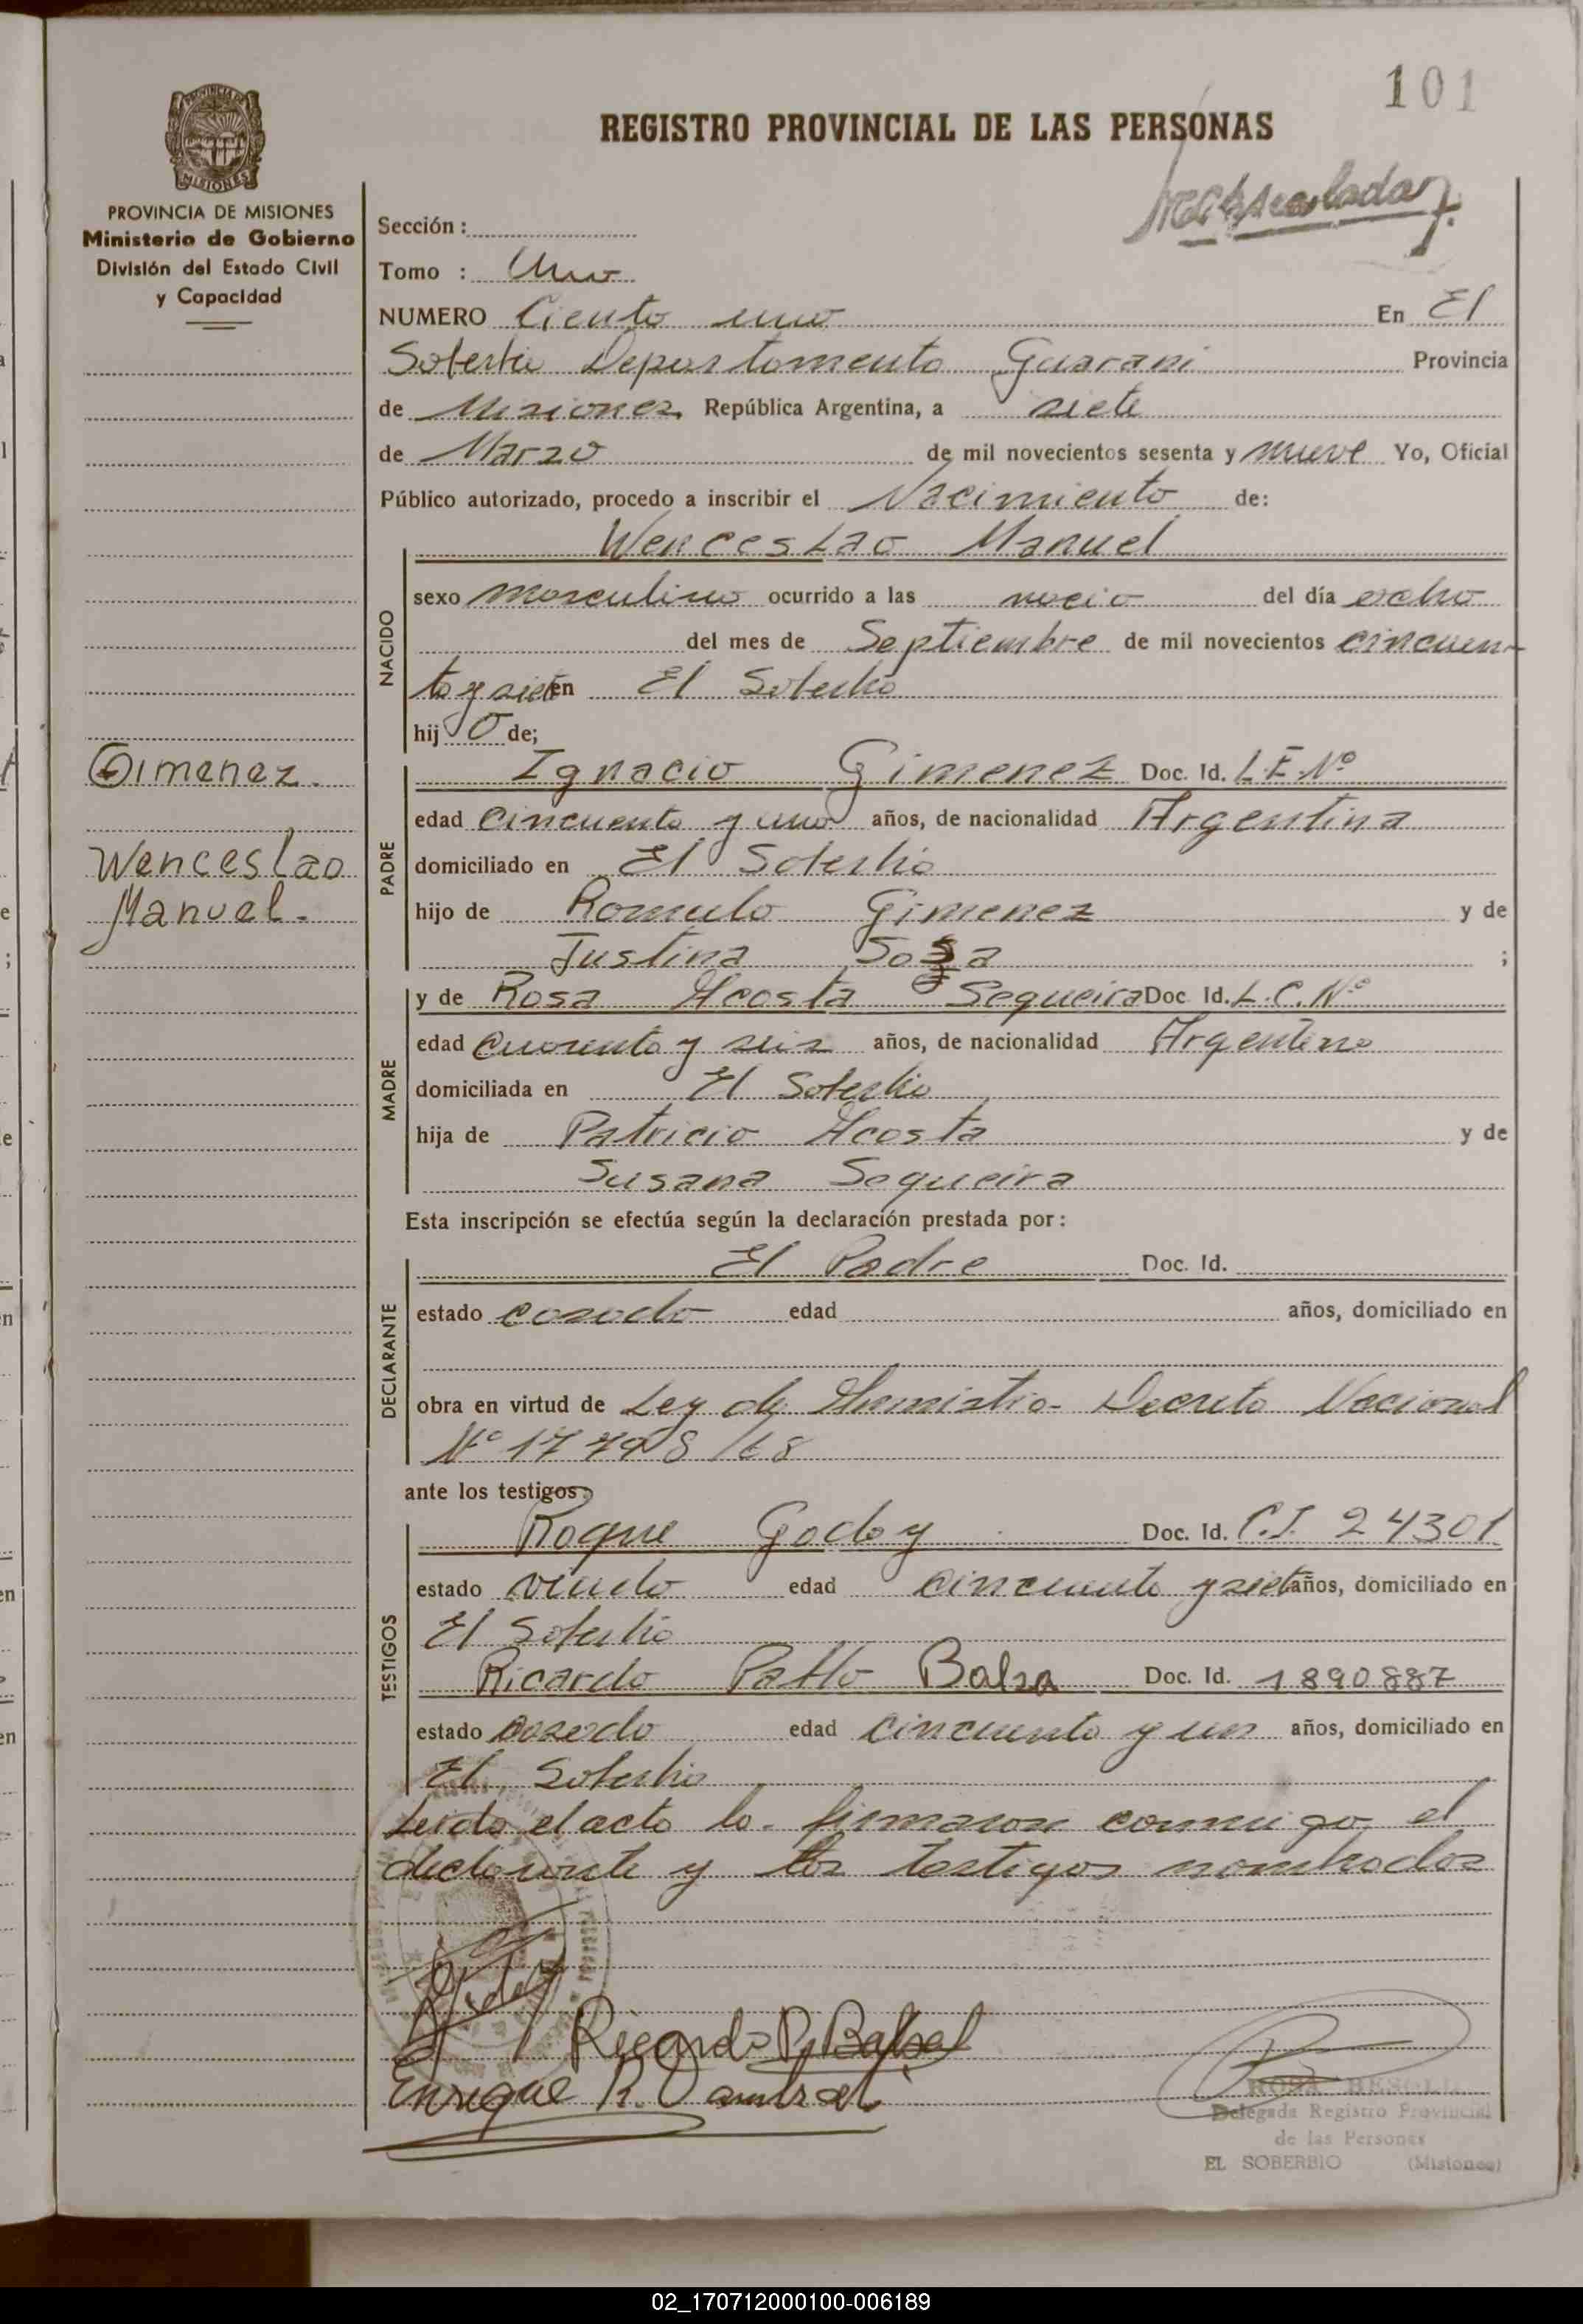 101
REGISTRO PROVINCIAL DE LAS PERSONAS
PROVINCIA DE MISIONES
MISIONES
PROVINCIA DE MISIONES
Ministerio de Gobierno
División del Estado Civil
y Capacidad
Sección :
Tomo : Uno
NUMERO Ciento uno En El
Soberbio Departamento Guarani Provincia
de Misiones República Argentina, a siete
de Marzo de mil novecientos sesenta y nueve Yo, Oficial
Público autorizado, procedo a inscribir el Nacimiento de:
Wenceslao Manuel
NACIDO
sexo masculino ocurrido a las del día ocho
del mes de Septiembre de mil novecientos cincuen-
ta y siete en El Soberbio
hij o de;
Gimenez.
Wenceslao
Manuel.
PADRE
Ignacio Gimenez Doc. Id. L.E. Nº
edad Cincuenta y uno años, de nacionalidad Argentina
domiciliado en El Soberbio
hijo de Romulo Gimenez y de
Justina Sosa ;
MADRE
y de Rosa Acosta Sequeira Doc Id. L.C. Nº
edad Cuarenta y seis años, de nacionalidad Argentina
domiciliada en El Soberbio
hija de Patricio Acosta y de
Susana Sequeira
Esta inscripción se efectúa según la declaración prestada por :
DECLARANTE
El Padre Doc. Id.
estado casado edad años, domiciliado en
obra en virtud de Ley de Amnistia- Decreto Nacional
Nº /68
ante los testigos:
TESTIGOS
Roque Godoy Doc. Id. C.I. 24301
estado viudo edad cincuenta y siete años, domiciliado en
El Soberbio
Ricardo Pablo Balsa Doc. Id. 1890887
estado casado edad cincuenta y un años, domiciliado en
El Soberbio
Leida el acta la firmaron conmigo el
declarante y los testigos nombrados
Ricardo P. Balsa
Enrique R.
ROSA
Delegada Registro Provincial
de las Personas
EL SOBERBIO (Misiones)
02_170712000100-006189